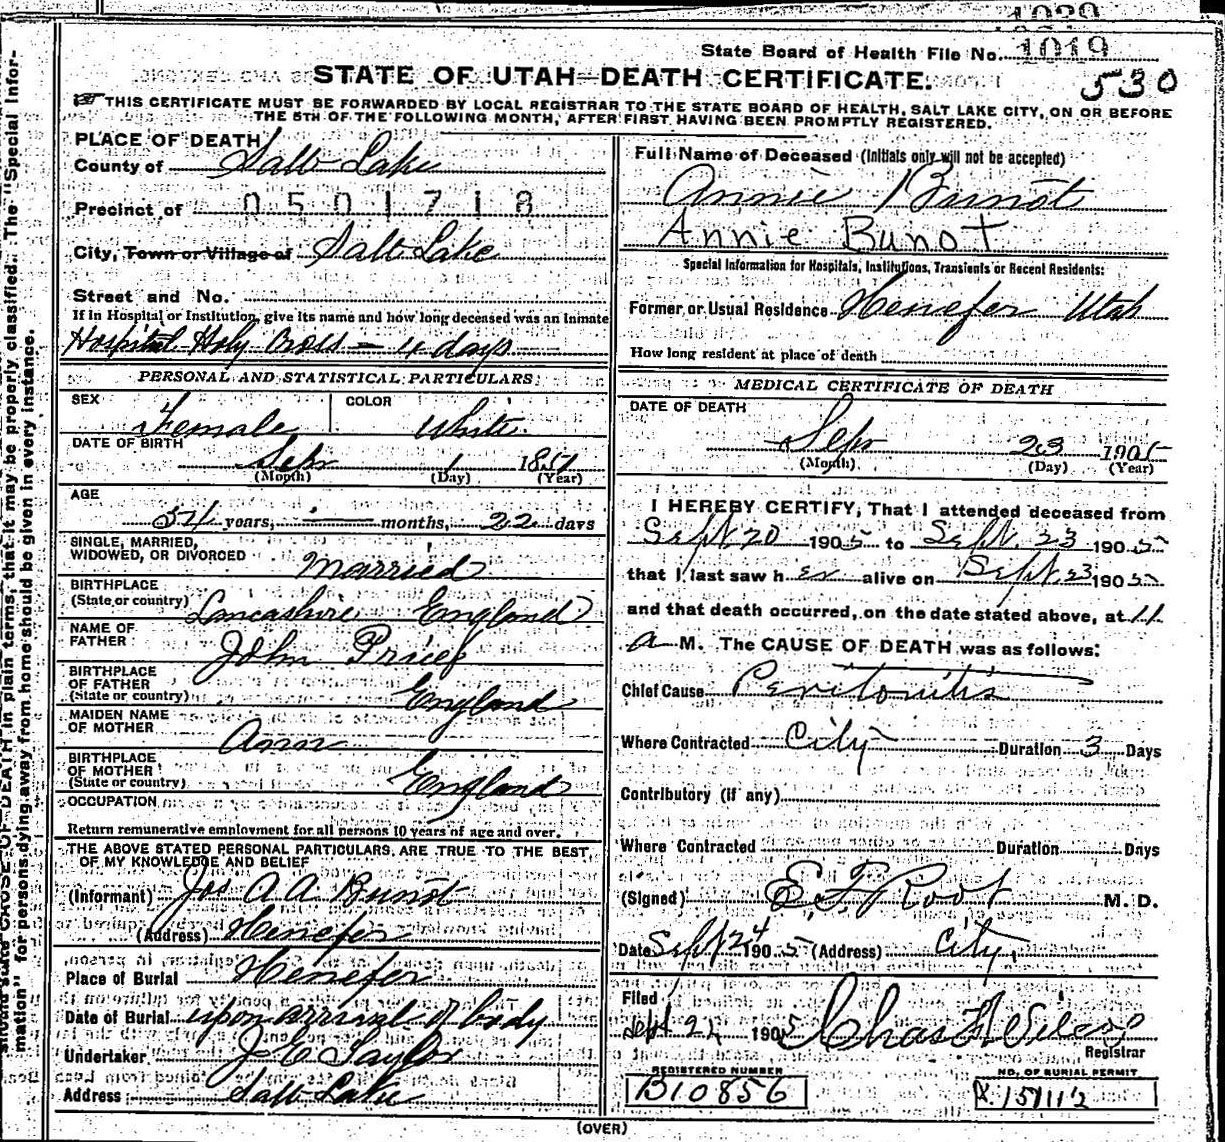 1029
State Board of Health File No. 1019
STATE OF UTAH—DEATH CERTIFICATE.
530
THIS CERTIFICATE MUST BE FORWARDED BY LOCAL REGISTRAR TO THE STATE BOARD OF HEALTH, SALT LAKE CITY, ON OR BEFORE
THE 5TH OF THE FOLLOWING MONTH, AFTER FIRST HAVING BEEN PROMPTLY REGISTERED.
PLACE OF DEATH
County of Salt Lake
Precinct of 0501718
City, Town or Village of Salt Lake
Street and No.
If in Hospital or Institution, give its name and how long deceased was an inmate
Hospital Holy Cross - 4 days
PERSONAL AND STATISTICAL PARTICULARS
SEX Female COLOR White
DATE OF BIRTH
Sep 1 1851
(Month) (Day) (Year)
AGE
54 years, — months, 22 days
SINGLE, MARRIED,
WIDOWED, OR DIVORCED Married
BIRTHPLACE
(State or country) Lancashire England
NAME OF
FATHER John Price
BIRTHPLACE
OF FATHER
(State or country) England
MAIDEN NAME
OF MOTHER Ann
BIRTHPLACE
OF MOTHER
(State or country) England
OCCUPATION
Return remunerative employment for all persons 10 years of age and over.
THE ABOVE STATED PERSONAL PARTICULARS ARE TRUE TO THE BEST
OF MY KNOWLEDGE AND BELIEF
(Informant) Jos A A Bunot
(Address) Henefer
Place of Burial Henefer
Date of Burial upon arrival of body
Undertaker J E Taylor
Address Salt Lake
Full Name of Deceased (Initials only will not be accepted)
Annie Bunot
Annie Bunot
Special Information for Hospitals, Institutions, Transients or Recent Residents:
Former or Usual Residence Henefer Utah
How long resident at place of death
MEDICAL CERTIFICATE OF DEATH
DATE OF DEATH
Sep 23 1905
(Month) (Day) (Year)
I HEREBY CERTIFY, That I attended deceased from
Sept. 20 1905 to Sept. 23 1905
that I last saw her alive on Sept. 23 1905
and that death occurred, on the date stated above, at 11
a M. The CAUSE OF DEATH was as follows:
Chief Cause Peritonitis
Where Contracted City Duration 3 Days
Contributory (if any)
Where Contracted Duration Days
(Signed) E. F. Root M. D.
Date Sept 24 1905 (Address) City.
Filed
Sept 1905 Chas
Registrar
REGISTERED NUMBER
B10856
NO. OF BURIAL PERMIT
(OVER)
should state CAUSE OF DEATH in plain terms, that it may be properly classified. The "Special Infor-
mation" for persons dying away from home should be given in every instance.